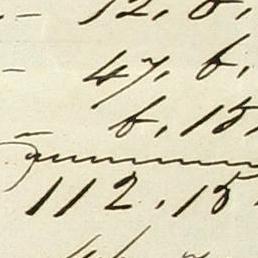 12. 8.
47. 6.
6. 15.
112. 15.